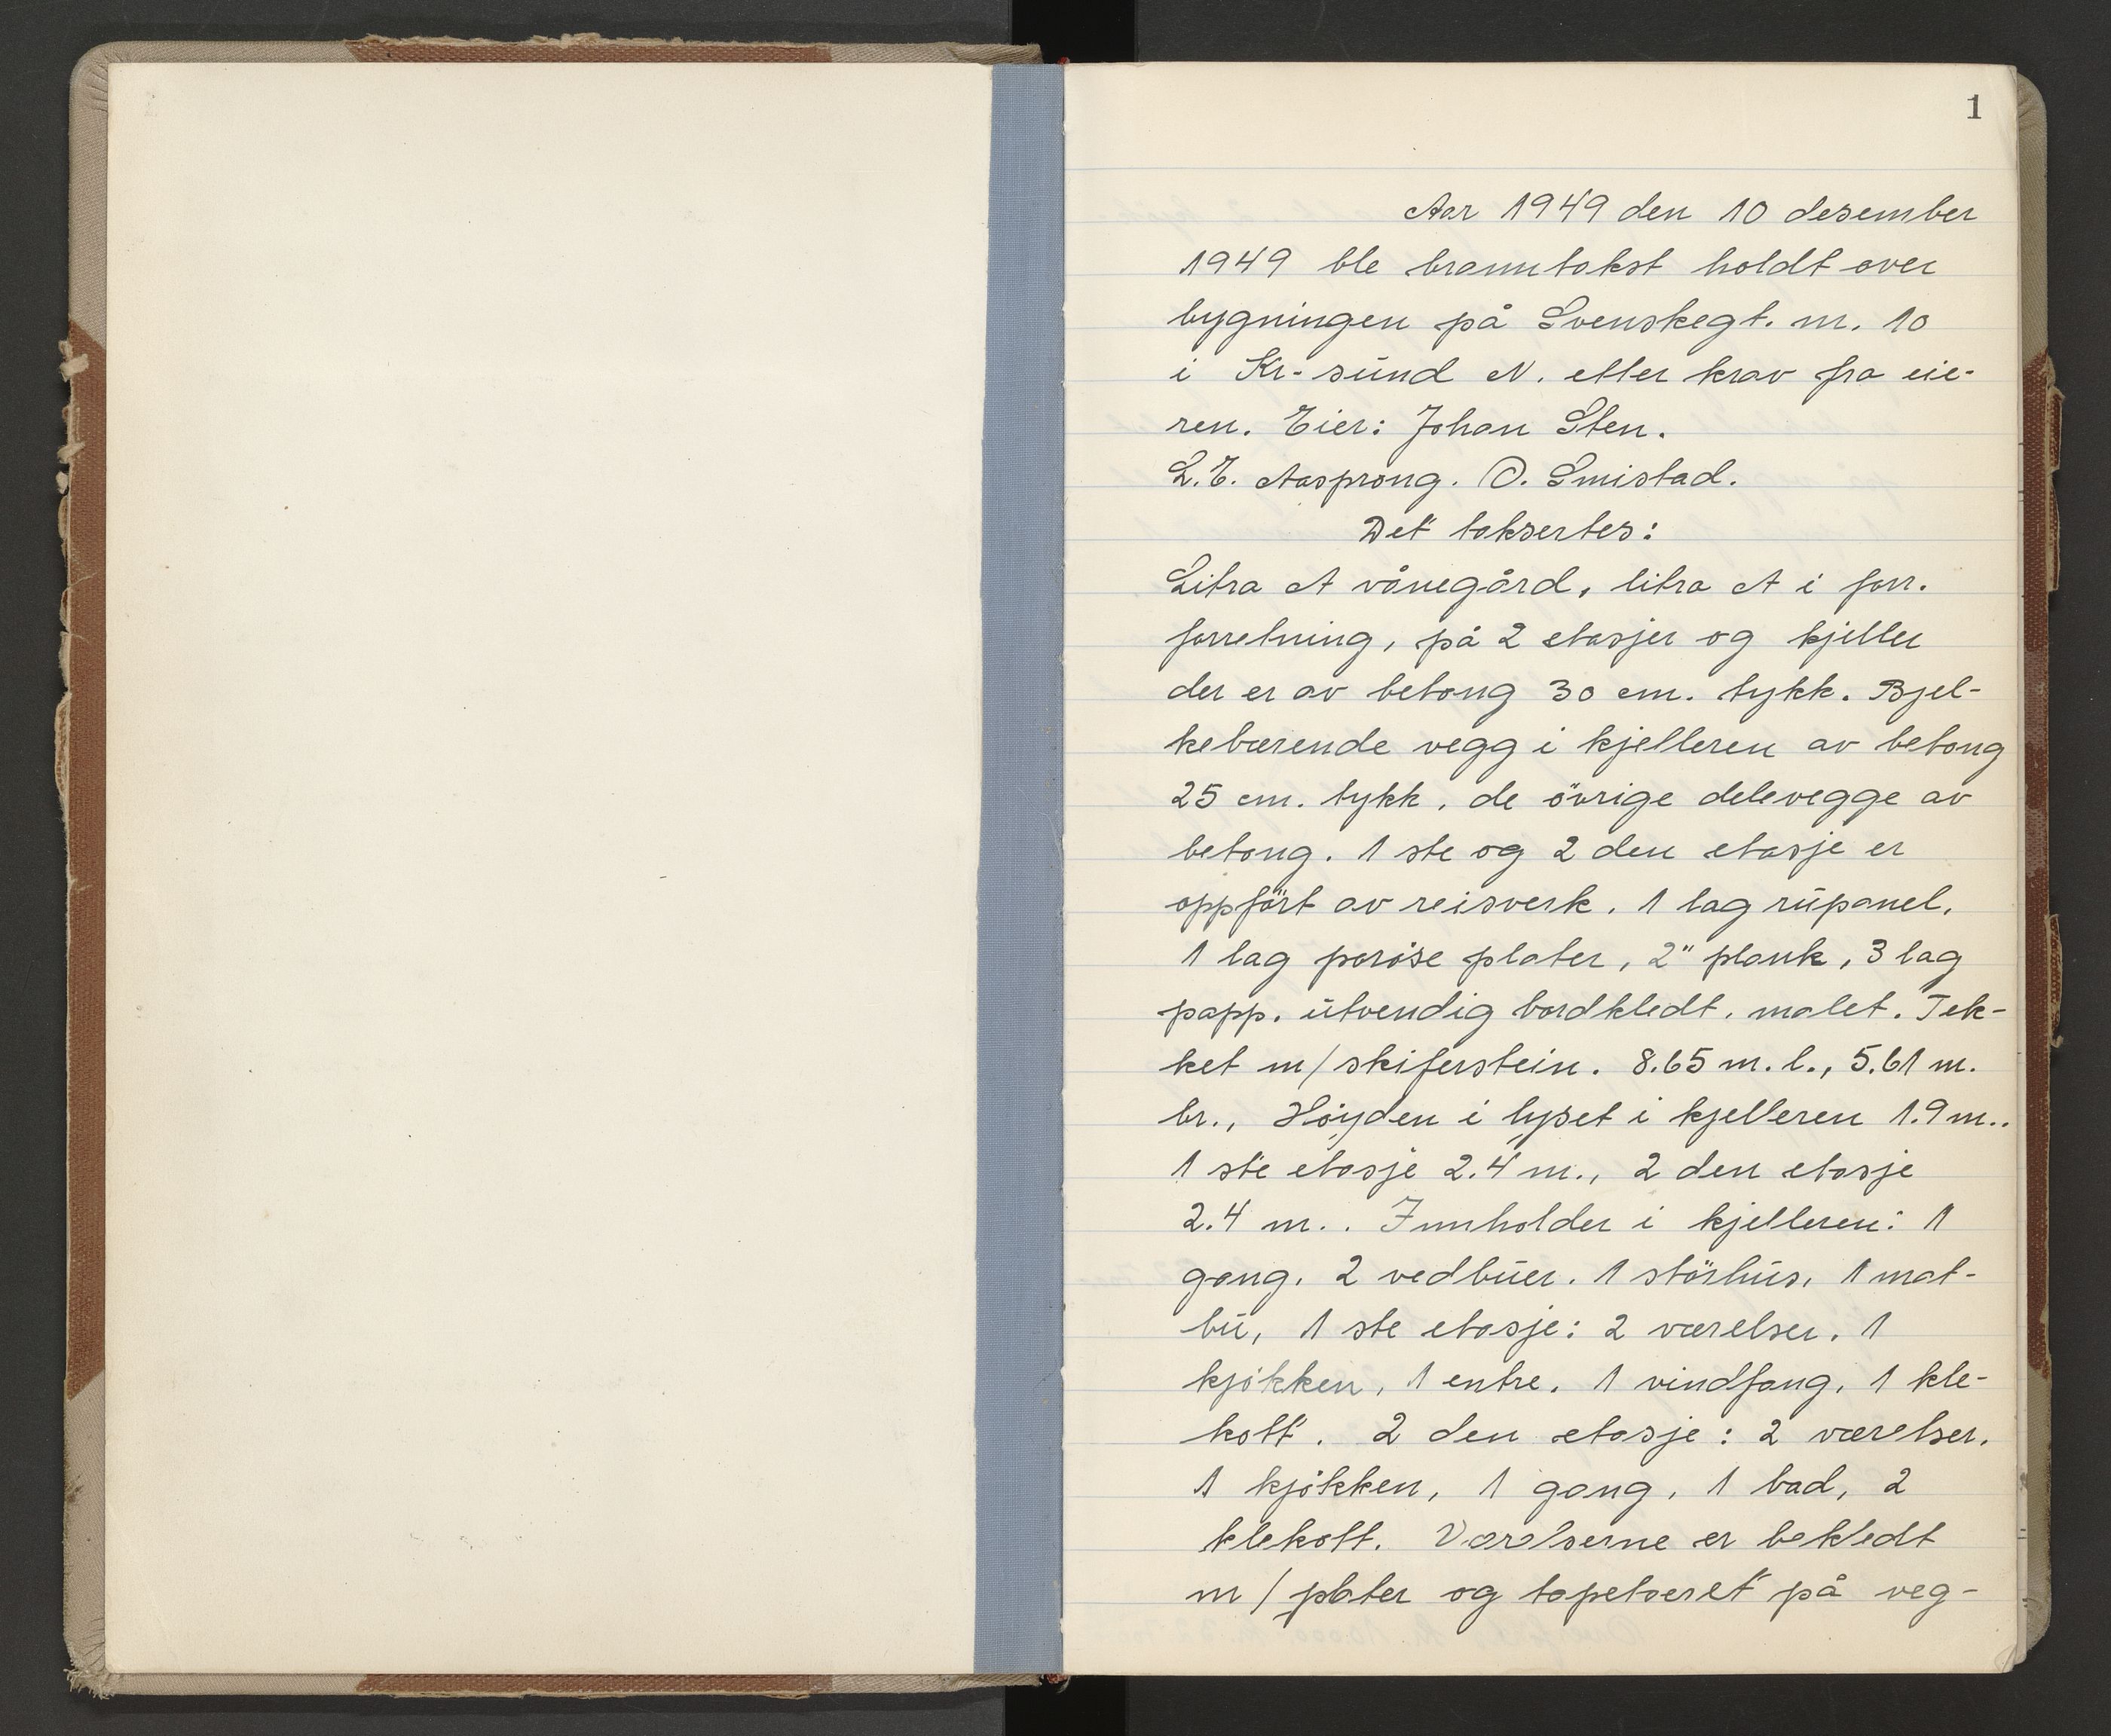 1
Aar 1949 den 10 desember
1949 ble branntakst holdt over
bygningen på Svenskegt. nr. 10
i Kr-sund N. etter krav fra eie-
ren. Eier: Johan Sten.
L.E. Aasprong. O. Smistad.
Det taksertes:
Litra A vånegård, litra A i forr.
forretning, på 2 etasjer og kjeller
der er av betong 30 cm. tykk. Bjel-
kebærende vegg i kjelleren av betong
25 cm. tykk, de övrige delevegge av
betong. 1 ste og 2 den etasje er
oppfört av reisverk, 1 lag rupanel,
1 lag poröse plater, 2" plank, 3 lag
papp, utvendig bordkledt, malet. Tek-
ket m/skiferstein. 8.65 m. l., 5.61 m.
br., Höyden i lyset i kjelleren 1.9 m..
1 ste etasje 2.4 m., 2 den etasje
2.4 m.. Innholder i kjelleren: 1
gang, 2 vedbuer, 1 störhus, 1 mat-
bu, 1 ste etasje: 2 værelser, 1
kjökken, 1 entre, 1 vindfang, 1 kle-
kott. 2 den etasje: 2 værelser,
1 kjökken, 1 gang, 1 bad, 2
klekott. Værelserne er bekledt
m/plater og tapetseret på veg-